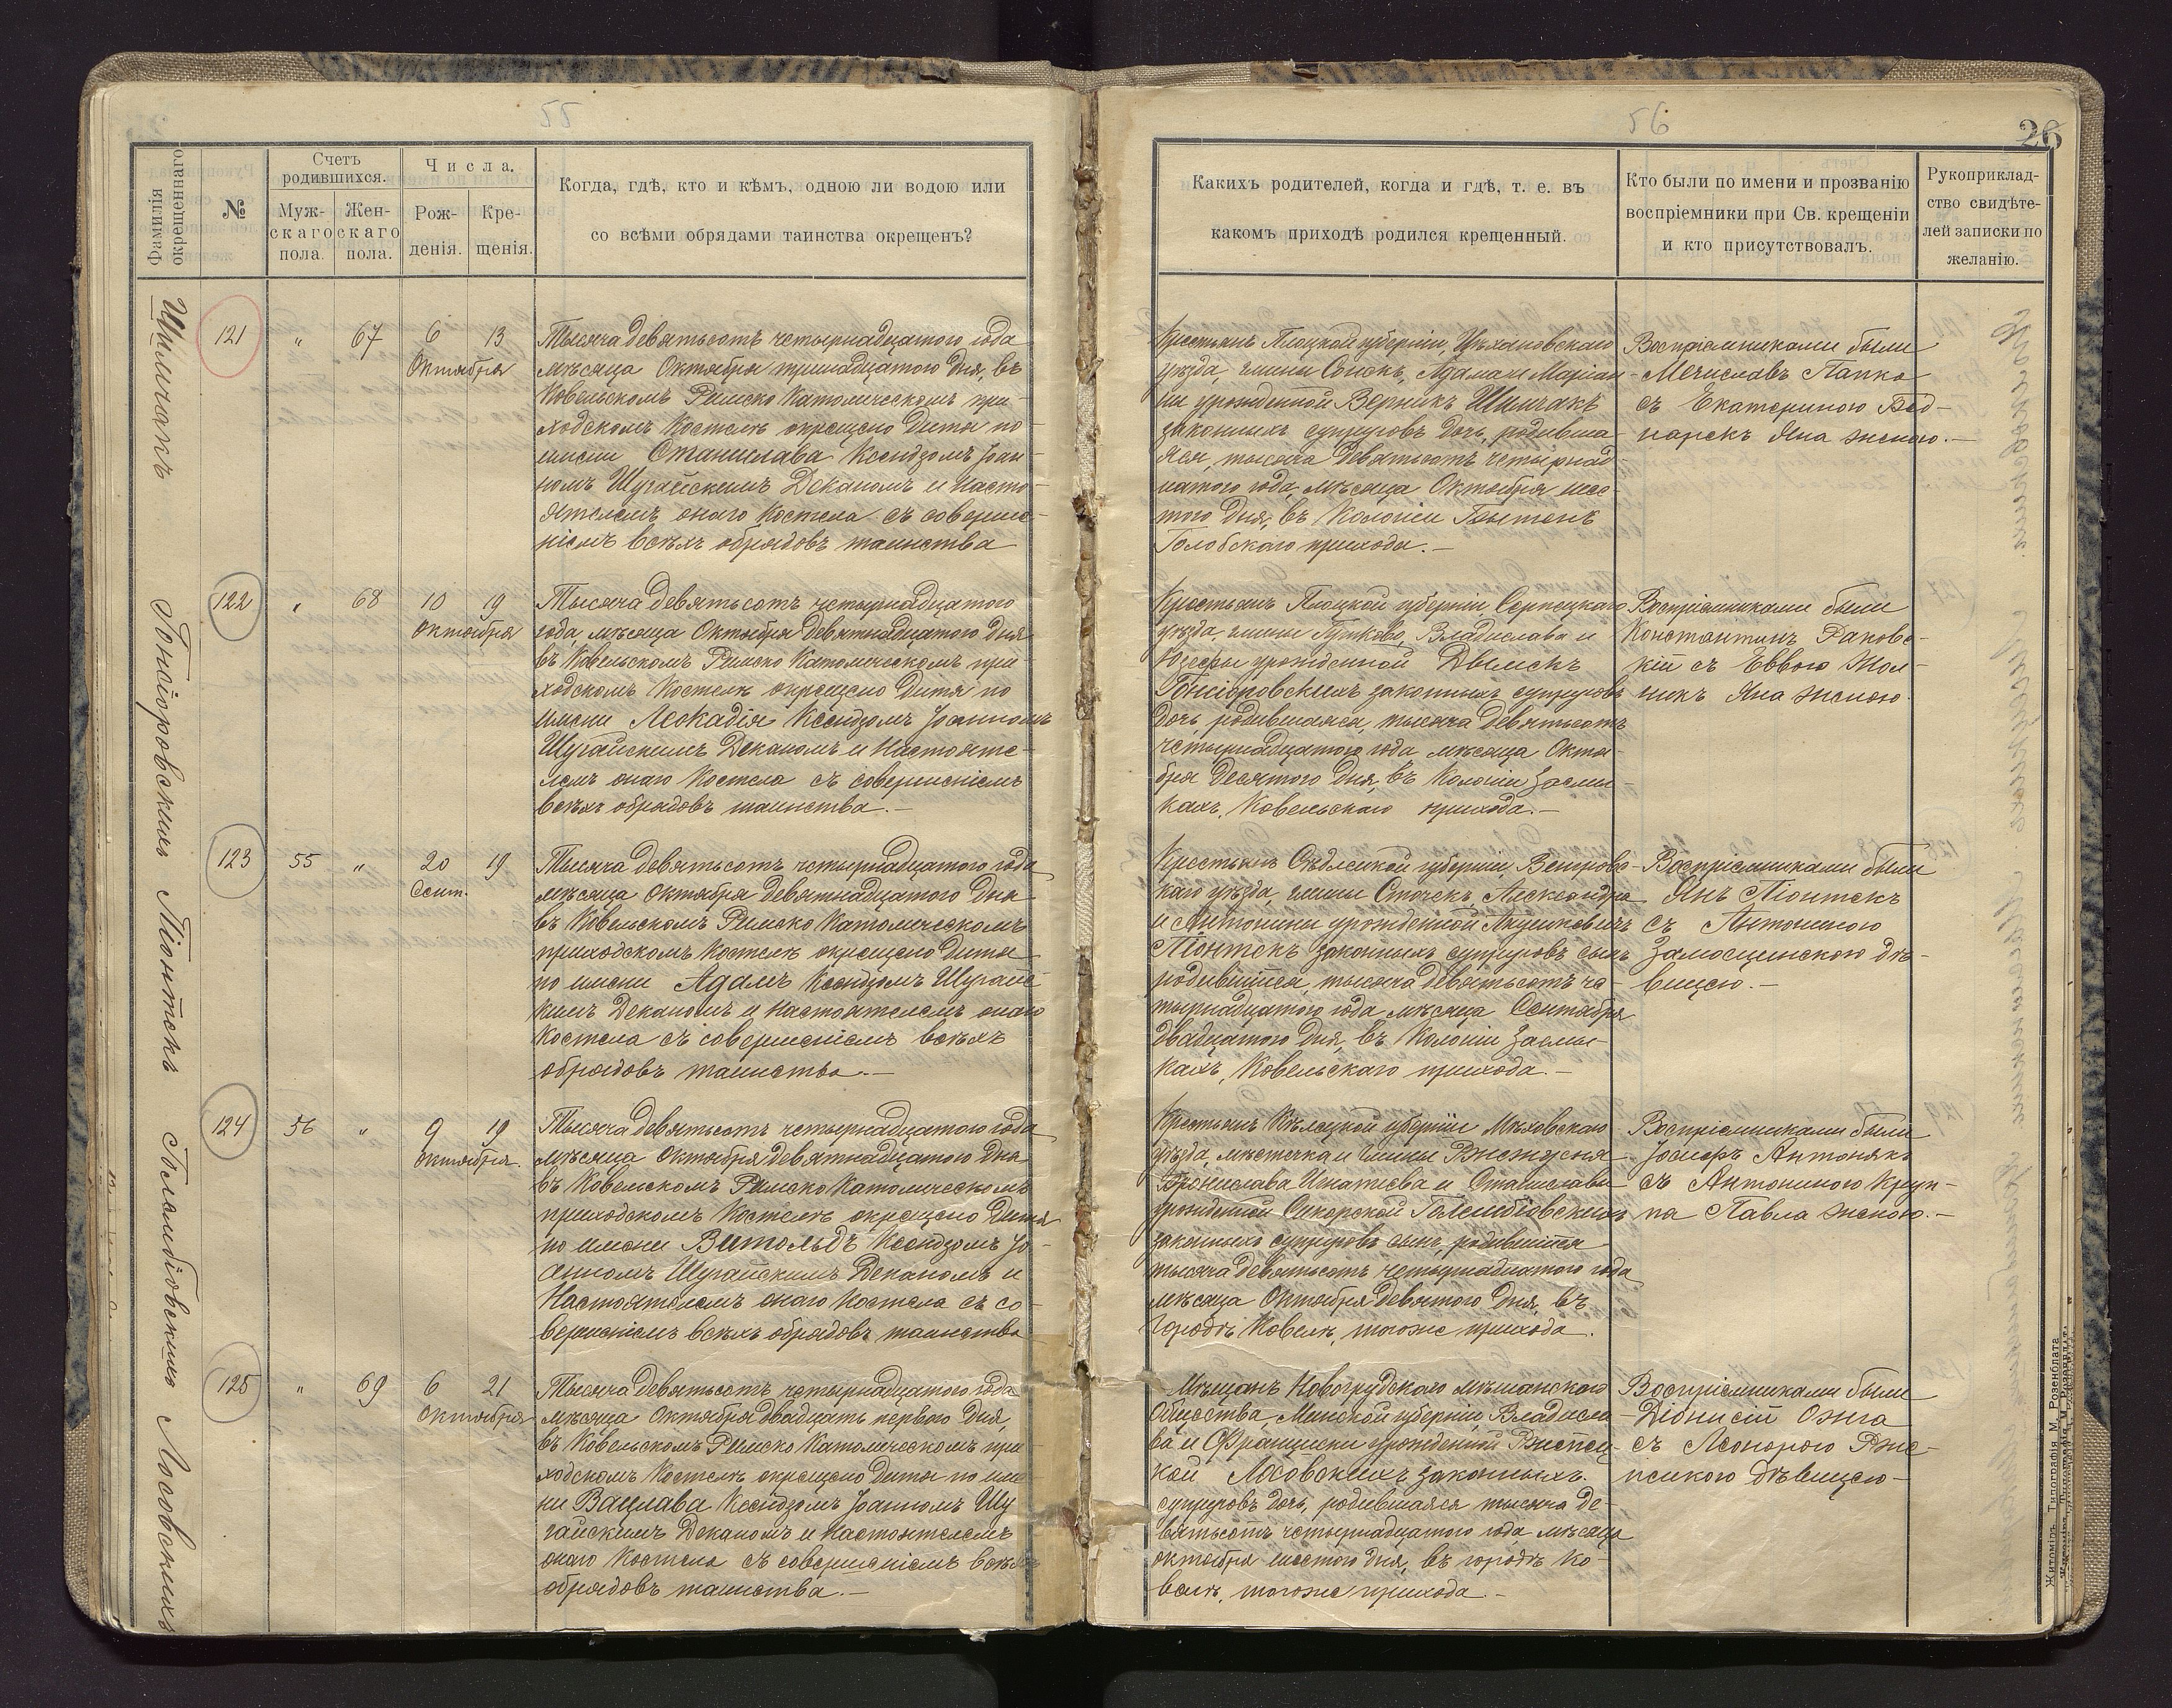 55
Фамилія окрещеннаго
№
Счетъ родившихся.
Муж-
скаго
пола.
Жен-
скаго
пола.
Числа.
Рож-
денія.
Кре-
щенія.
Когда, гдѣ, кто и кѣмъ, одною ли водою или
со всѣми обрядами таинства окрещенъ?
121
"
67
6
13
Октября
Тысяча девятьсотъ четырнадцатого года
мѣсяца Октября тринадцатого дня, въ
Ковельскомъ Римско Католическомъ при-
ходскомъ Костелѣ окрещено дитя по
имени Станислава Ксендзомъ Іоан-
номъ Шугайскимъ Деканомъ и Насто-
ятелемъ онаго Костела съ соверше-
ніемъ всѣхъ обрядовъ таинства
122
"
68
10
19
Октября
Тысяча девятьсотъ четырнадцатого
года, мѣсяца Октября девятнадцатого дня
въ Ковельскомъ Римско Католическомъ при-
ходскомъ Костелѣ окрещено дитя по
имени Леокадія Ксендзомъ Іоанномъ
Шугайскимъ Деканомъ и Настояте-
лемъ онаго Костела съ совершеніемъ
всѣхъ обрядовъ таинства.—
Гонсіоровскихъ
123
55
"
20
19
Сент.
Тысяча девятьсотъ четырнадцатого года
мѣсяца Октября девятнадцатого дня
въ Ковельскомъ Римско Католическомъ
приходскомъ Костелѣ окрещено дитя
по имени Адамъ Ксендзомъ Шугайс-
кимъ Деканомъ и Настоятелемъ онаго
Костела съ совершеніемъ всѣхъ
обрядовъ таинства.—
Піонтекъ
124
56
"
9
19
Октября.
Тысяча девятьсотъ четырнадцатого года
мѣсяца Октября девятнадцатого дня
въ Ковельскомъ Римско Католическомъ
приходскомъ Костелѣ окрещено дитя
по имени Витольдъ Ксендзомъ Іо-
анномъ Шугайскимъ Деканомъ и
Настоятелемъ онаго Костела съ со-
вершеніемъ всѣхъ обрядовъ таинства
Голембіовскихъ
125
"
69
6
21
Октября
Тысяча девятьсотъ четырнадцатого года
мѣсяца Октября двадцать первого дня,
въ Ковельскомъ Римско Католическомъ при-
ходскомъ Костелѣ окрещено дитя по име-
ни Вацлава Ксендзомъ Іоанномъ Шу
гайскимъ Деканомъ и Настоятелемъ
онаго Костела съ совершеніемъ всѣхъ
обрядовъ таинства.—
Лосовскихъ
56
26
Какихъ родителей, когда и гдѣ, т. е. въ
какомъ приходѣ родился крещенный.
Кто были по имени и прозванію
воспріемники при Св. крещеніи
и кто присутствовалъ.
Рукоприклад-
ство свидѣте-
лей записки по
желанію.
Крестьянъ Плоцкой губерніи, Цѣхановскаго
уѣзда, гмины Сонскъ, Адама и Маріан-
ны урожденной Верникъ Шимчакъ
законныхъ супруговъ дочь, родивша-
яся, тысяча девятьсотъ четырнад-
цатого года, мѣсяца Октября шес-
того дня, въ Колоніи
Голобскаго прихода.—
Воспріемниками были
Мечиславъ Папка
съ Екатериною Бед-
нарекъ Яна женою.—
Крестьянъ Плоцкой губерніи Серпецкаго
уѣзда, гмины Владислава и
Юзефы урожденной
Гонсіоровскихъ законныхъ супруговъ
дочь, родившаяся, тысяча девятьсотъ
четырнадцатого года мѣсяца Октя-
бря десятого дня, въ Колоніи Засмы-
кахъ, Ковельскаго прихода.—
Воспріемниками были
Константинъ Раковс-
кій съ Еввою
Яна женою.
Крестьянъ Сѣдлецкой губерніи, Венгровс-
каго уѣзда, гмины Сточекъ, Александра
и Антонины урожденной
Піонтекъ законныхъ супруговъ сынъ
родившійся, тысяча девятьсотъ че-
тырнадцатого года мѣсяца Сентября
двадцатого дня, въ Колоніи Засмы-
кахъ, Ковельскаго прихода.—
Воспріемниками были
Янъ Піонтекъ
съ Антониною
Замосцинскою дѣ-
вицею.—
Крестьянъ Кѣлецкой губерніи Мѣховскаго
уѣзда, мѣстечка и гмины
Бронислава Игнатіева и Станиславы
урожденной Сикорской Голембіовскихъ
законныхъ супруговъ сынъ, родившійся
тысяча девятьсотъ четырнадцатого года
мѣсяца Октября девятого дня, въ
городѣ Ковелѣ, тогоже прихода.
Воспріемниками были
Іосифъ Антонякъ
съ Антониною Круп-
па Павла женою.—
Мѣщанъ Новогрудскаго мѣщанскаго
Общества, Минской губерніи, Владисла-
ва и Францишки урожденной Ржепец-
кой Лосовскихъ законныхъ
супруговъ дочь, родившаяся тысяча де-
вятьсотъ четырнадцатого года мѣсяца
октября шестого дня, въ городѣ Ко-
велѣ, тогоже прихода.—
Воспріемниками были
Діонисій Ожга
съ Леонорою Рже-
пецкою дѣвицею—
Житоміръ. Типографія М. Розенблата